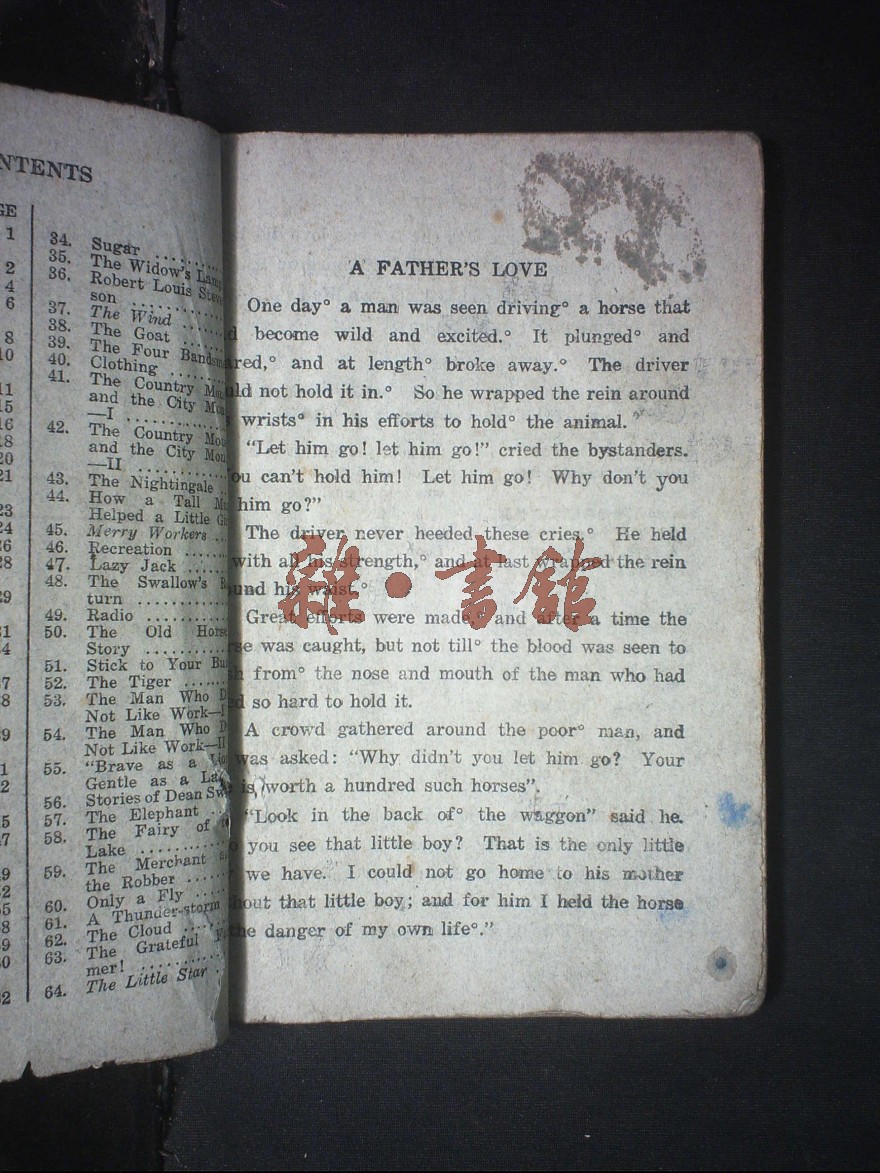 NTENTS
GE
1
2
4
6
8
10
11
15
16
18
20
21
23
24
26
28
29
31
4
7
8
9
1
2
5
7
9
2
5
8
9
0
2
34. Sugar ..........
35. The Widow's Lamp
36. Robert Louis Steven
son ..........
37. The Wind ........
38. The Goat ........
39. The Four Bandsme
40. Clothing ........
41. The Country Mou
and the City Mou
—I ..........
42. The Country Mou
and the City Mou
—II ..........
43. The Nightingale ..
44. How a Tall Ma
Helped a Little Gi
45. Merry Workers ...
46. Recreation ......
47. Lazy Jack ......
48. The Swallow's R
turn ..........
49. Radio ..........
50. The Old Horse
Story ..........
51. Stick to Your Bu
52. The Tiger ......
53. The Man Who D
Not Like Work—I
54. The Man Who D
Not Like Work—II
55. "Brave as a Lion
Gentle as a La
56. Stories of Dean Sw
57. The Elephant ..
58. The Fairy of
Lake ..........
59. The Merchant a
the Robber ......
60. Only a Fly ......
61. A Thunder-storm
62. The Cloud ......
63. The Grateful
mer! ..........
64. The Little Star ..
A FATHER'S LOVE
One day° a man was seen driving° a horse that
d become wild and excited.° It plunged° and
red,° and at length° broke away.° The driver
ld not hold it in.° So he wrapped the rein around
wrists° in his efforts to hold° the animal.°
"Let him go! let him go!" cried the bystanders.
ou can't hold him! Let him go! Why don't you
him go?"
The driver never heeded these cries.° He held
with all his strength,° and at last wrapped the rein
und his waist.°
Great efforts were made,° and after a time the
se was caught, but not till° the blood was seen to
h from° the nose and mouth of the man who had
d so hard to hold it.
A crowd gathered around the poor° man, and
was asked: "Why didn't you let him go? Your
is worth a hundred such horses".
"Look in the back of° the waggon" said he.
you see that little boy? That is the only little
we have. I could not go home to his mother
hout that little boy; and for him I held the horse
the danger of my own life°."
雜·書館